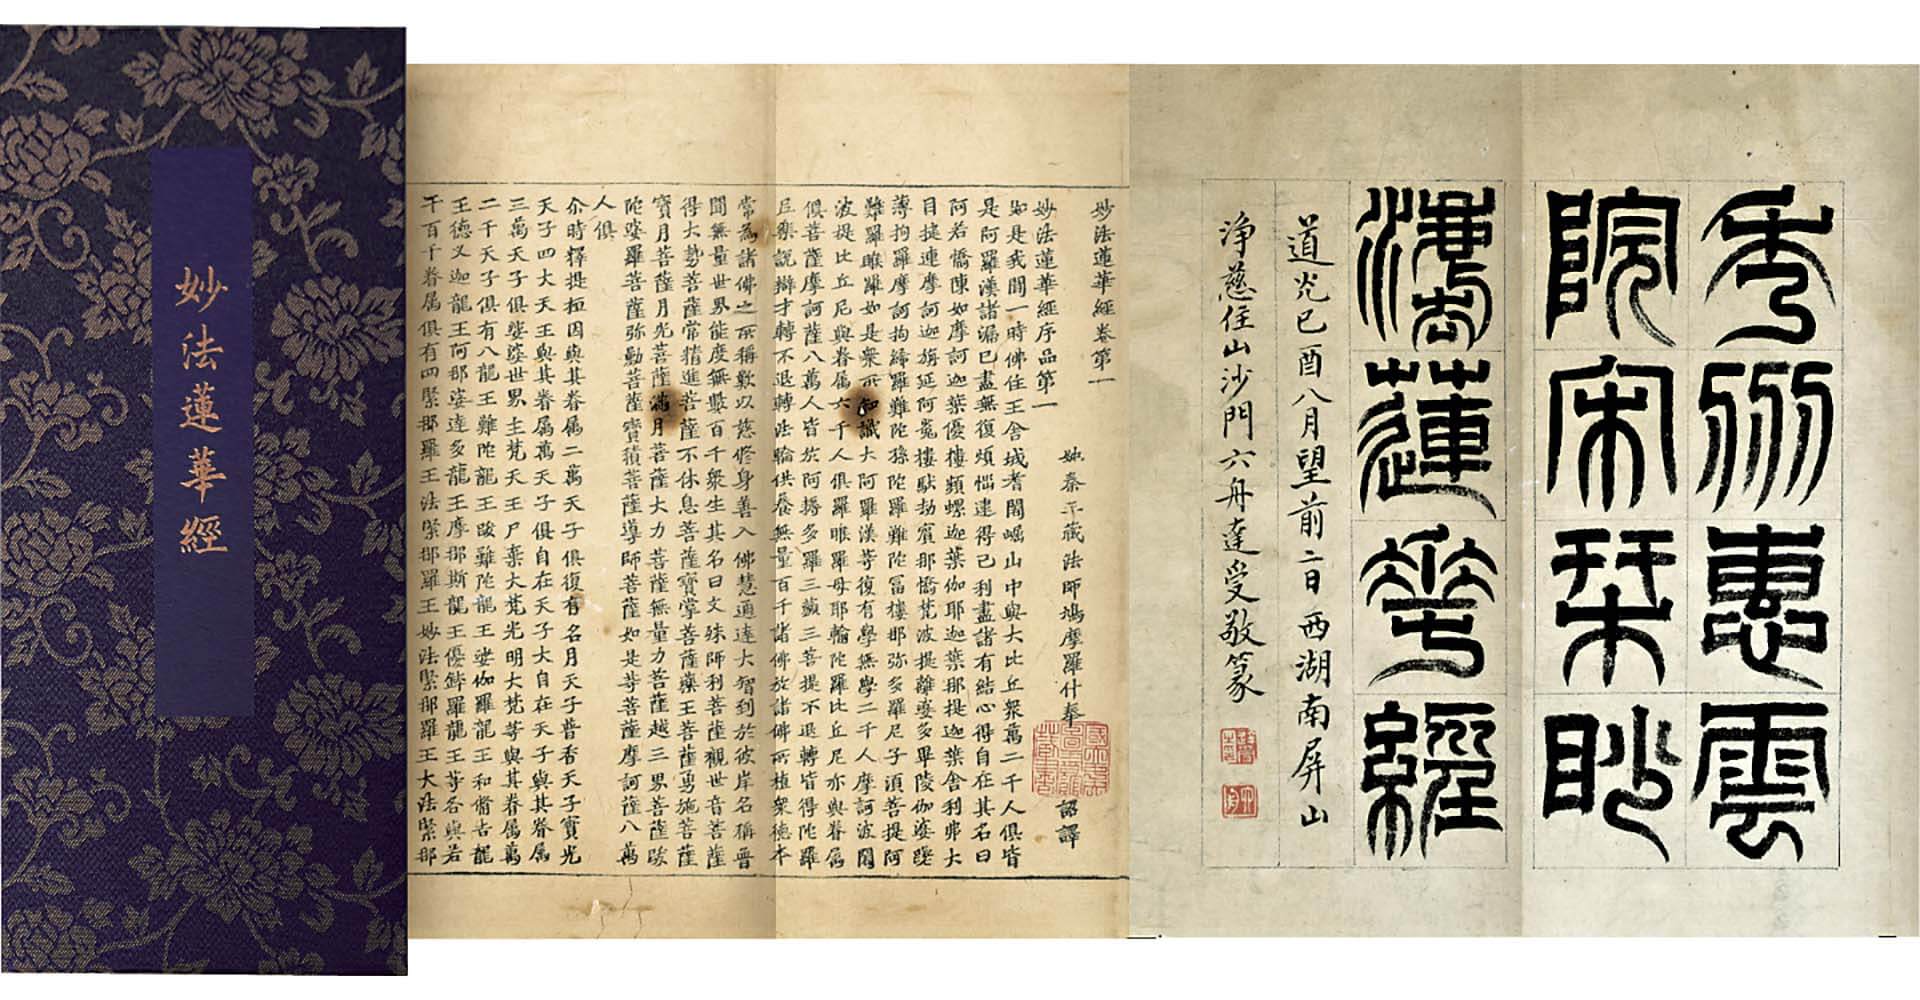 秀州惠雲
院宋栞眇
灋蓮華經
道光已酉八月望前二日西湖南屏山
淨慈住山沙門六舟達受敬篆
妙法蓮華經卷第一
姚秦三藏法師鳩摩羅什奉 詔譯
妙法蓮華經序品第一
如是我聞一時佛住王舍城耆闍崛山中與大比丘衆萬二千人俱皆
是阿羅漢諸漏已盡無復煩惱逮得己利盡諸有結心得自在其名曰
阿若憍陳如摩訶迦葉優樓頻螺迦葉伽耶迦葉那提迦葉舍利弗大
目揵連摩訶迦旃延阿㝹樓馱劫賓那憍梵波提離婆多畢陵伽婆蹉
薄拘羅摩訶拘絺羅難陀孫陀羅難陀富樓那弥多羅尼子須菩提阿
難羅睺羅如是衆所知識大阿羅漢等復有學無學二千人摩訶波闍
波提比丘尼與眷屬六千人俱羅睺羅母耶輸陀羅比丘尼亦與眷屬
俱菩薩摩訶薩八萬人皆於阿耨多羅三藐三菩提不退轉皆得陀羅
尼樂說辯才轉不退轉法輪供養無量百千諸佛於諸佛所植衆德本
常為諸佛之所稱歎以慈修身善入佛慧通達大智到於彼岸名稱普
聞無量世界能度無數百千衆生其名曰文殊師利菩薩觀世音菩薩
得大勢菩薩常精進菩薩不休息菩薩寶掌菩薩藥王菩薩勇施菩薩
寶月菩薩月光菩薩滿月菩薩大力菩薩無量力菩薩越三界菩薩跋
陀婆羅菩薩弥勒菩薩寶積菩薩導師菩薩如是等菩薩摩訶薩八萬
人俱
尒時釋提桓因與其眷屬二萬天子俱復有名月天子普香天子寶光
天子四大天王與其眷屬萬天子俱自在天子大自在天子與其眷屬
三萬天子俱娑婆世界主梵天王尸棄大梵光明大梵等與其眷屬萬
二千天子俱有八龍王難陀龍王跋難陀龍王娑伽羅龍王和脩吉龍
王德叉迦龍王阿那婆達多龍王摩那斯龍王優鉢羅龍王等各與若
干百千眷屬俱有四緊那羅王法緊那羅王妙法緊那羅王大法緊那
妙法蓮華經